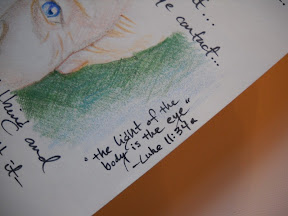 t...
e contact...
think and
it-
"the light of the
body is the eye"
-Luke 11:34a